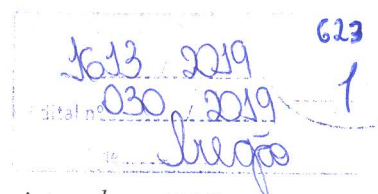 623
1613 / 2019
1
dital nº 030 / 2019
de Pregão